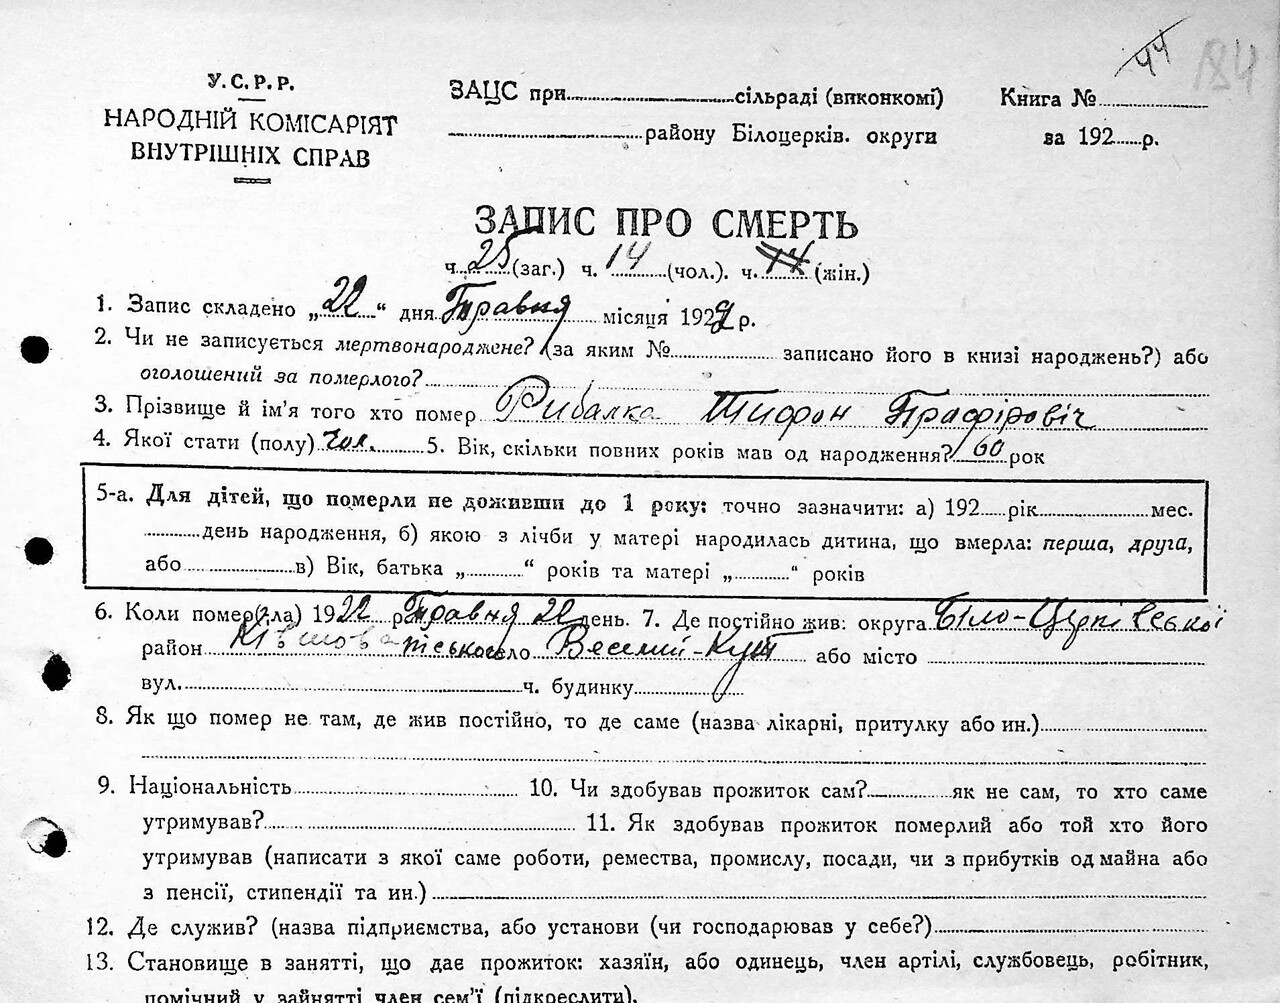 44 184
У.С.Р.Р.
НАРОДНІЙ КОМІСАРІЯТ
ВНУТРІШНІХ СПРАВ
ЗАЦС при сільраді (впконкомі)
району Білоцерків. округи
Книга №
за 192 р.
ЗАПИС ПРО СМЕРТЬ
ч. 25 (заг.) ч. 14 (чол.). ч. (жін.)
1. Запис складено „ 22 “ дня Травня місяця 1922 р.
2. Чи не записується мертвонароджене? (за яким № записано його в книзі народжень?) або
оголошений за померлого?
3. Прізвище й ім'я того хто помер Рибалка Тифон
4. Якої стати (полу) чол. 5. Вік, скільки повних років мав од народження? 60 рок
5-а. Для дітей, що померли не доживши до 1 року: точно зазначити: а) 192 рік мес.
день народження, б) якою з лічби у матері народилась дитина, що вмерла: перша, друга,
або в) Вік, батька „ “ років та матері „ “ років
6. Коли помер(ла) 1922 р Травня 22 день. 7. Де постійно жив: округа Біло-Церківської
район село Веселий-Кут або місто
вул. ч. будинку
8. Як що помер не там, де жив постійно, то де саме (назва лікарні, притулку або ин.)
9. Національність 10. Чи здобував прожиток сам? як не сам, то хто саме
утримував? 11. Як здобував прожиток померлий або той хто його
утримував (написати з якої саме роботи, ремества, промислу, посади, чи з прибутків од майна або
з пенсії, стипендії та ин.)
12. Де служив? (назва підприємства, або установи (чи господарював у себе?)
13. Становище в занятті, що дає прожиток: хазяїн, або одинець, член артілі, службовець, робітник,
помічний у зайнятті член сем'ї (підкреслити).